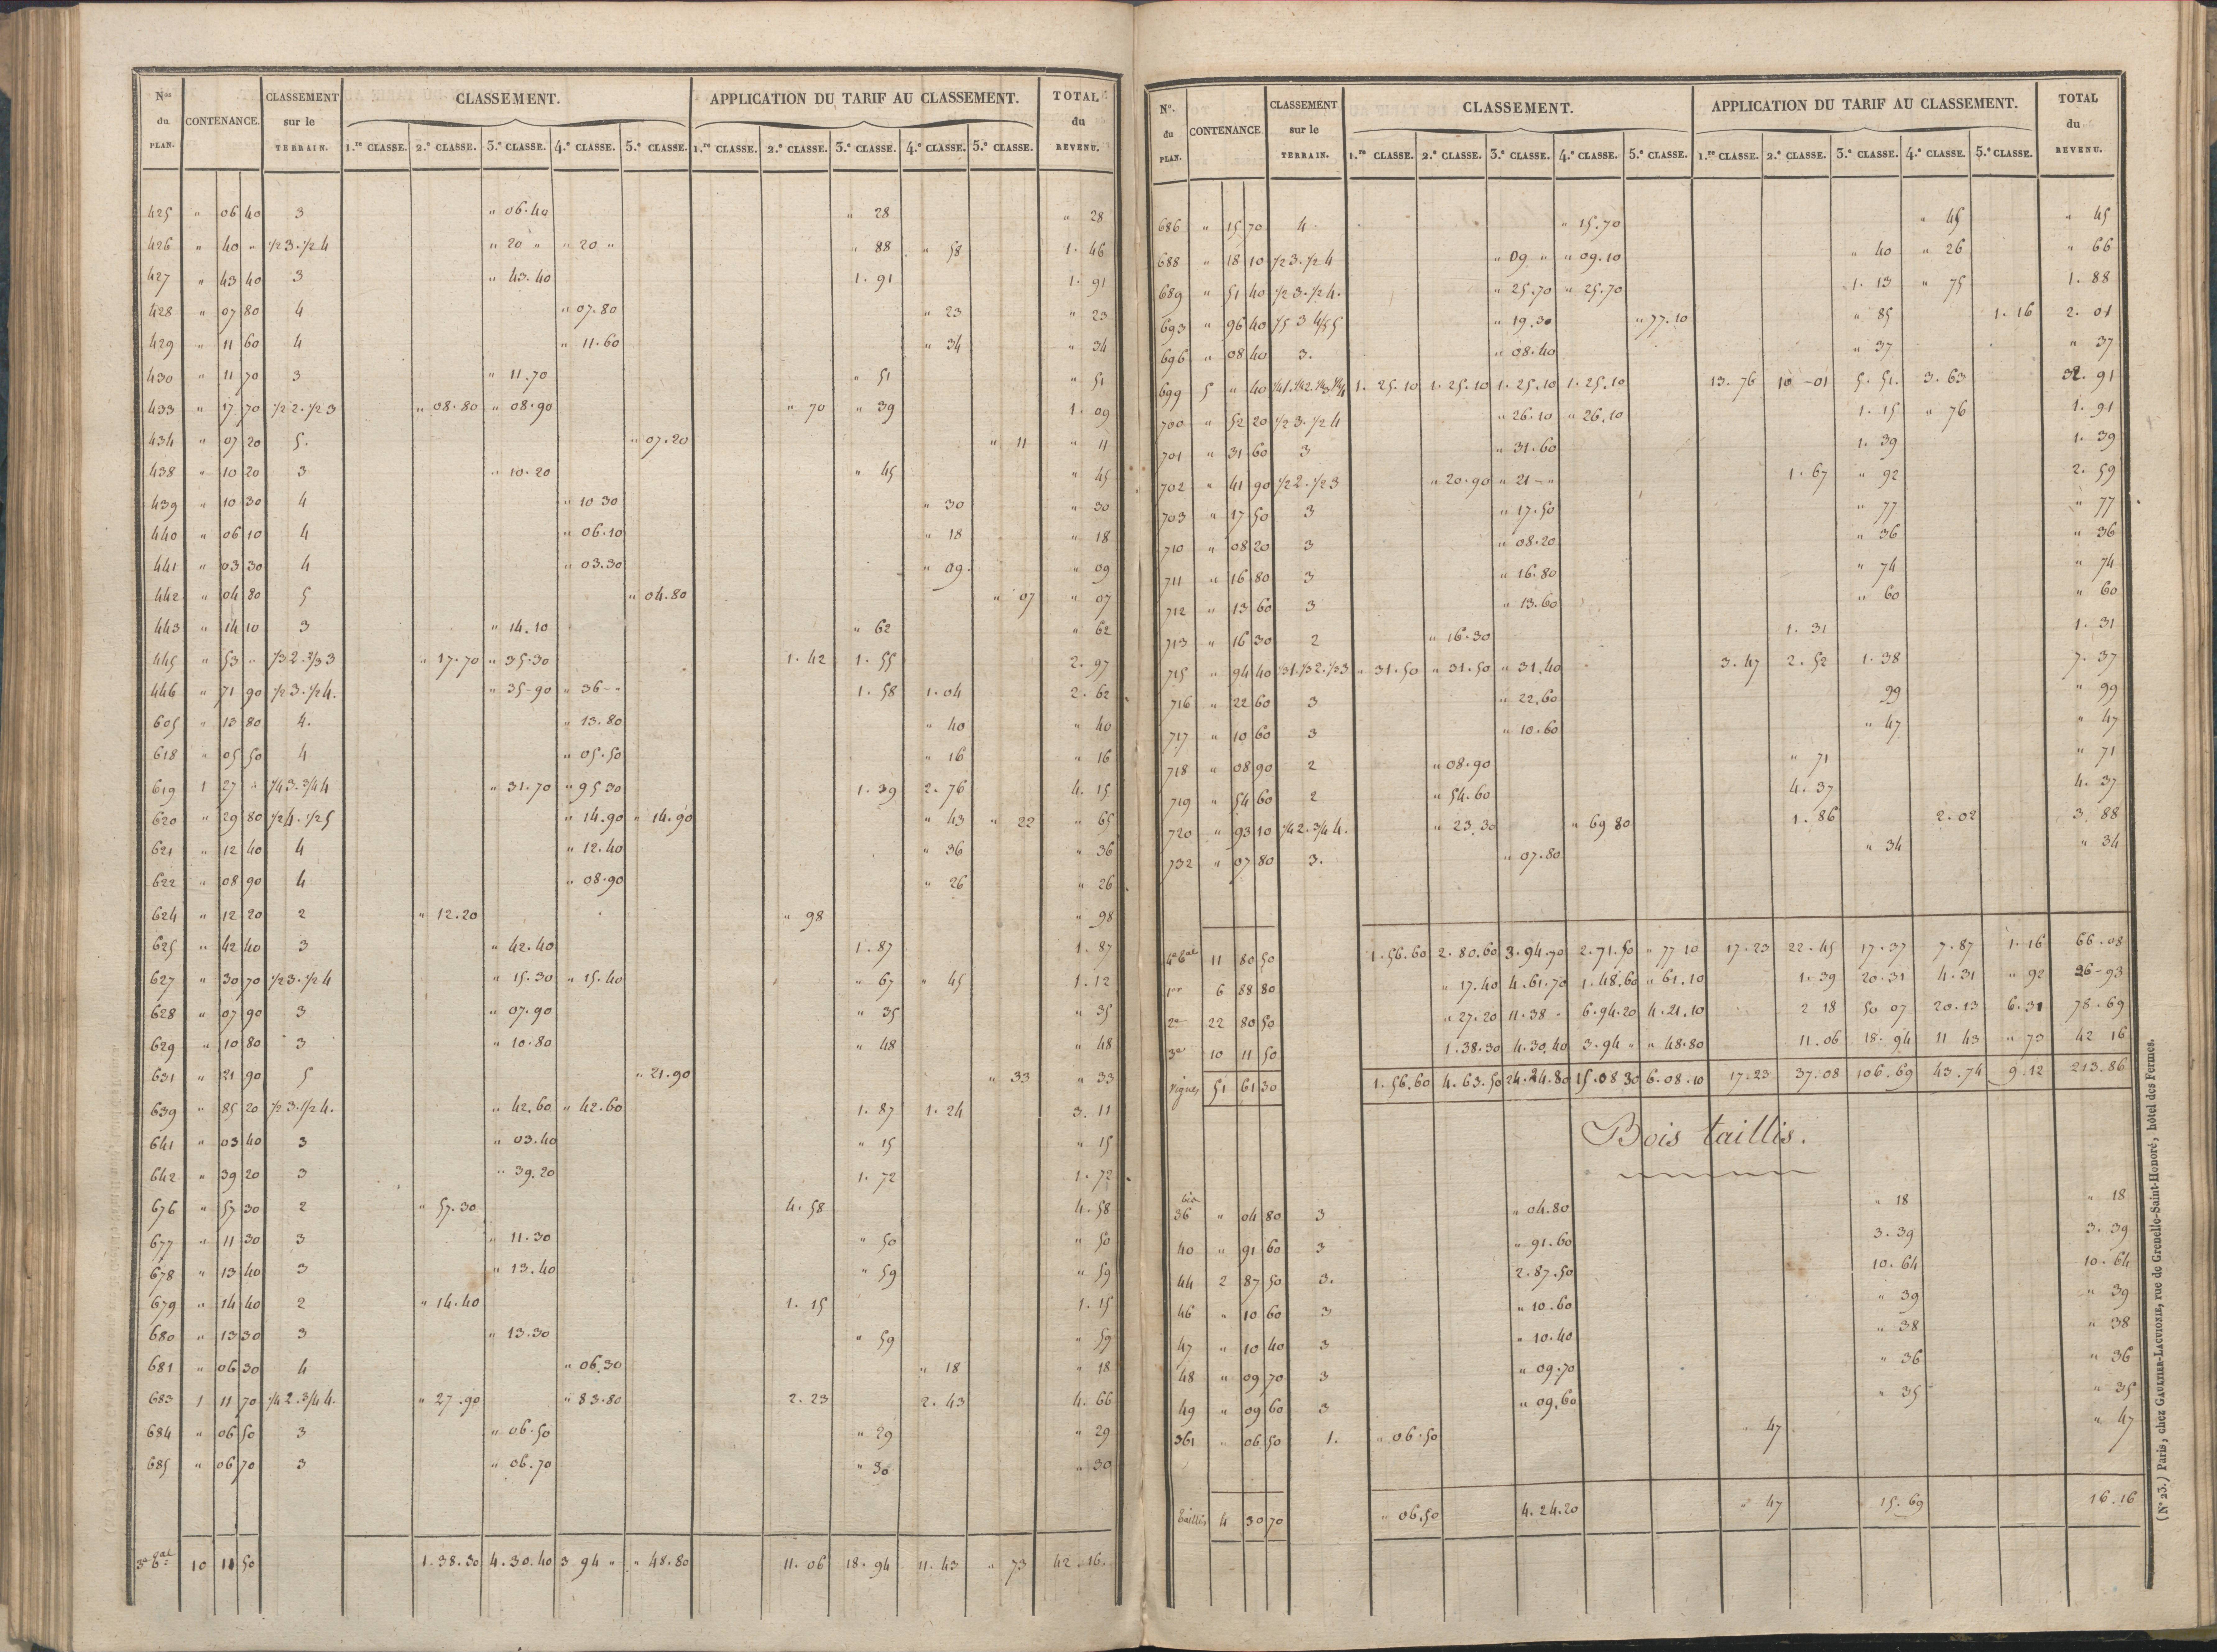 Nos du PLAN. CONTENANCE. CLASSEMENT sur le TERRAIN. CLASSEMENT. APPLICATION DU TARIF AU CLASSEMENT. TOTAL du REVENU.
1.re CLASSE. 2.e CLASSE. 3.e CLASSE. 4.e CLASSE. 5.e CLASSE. 1.re CLASSE. 2.e CLASSE. 3.e CLASSE. 4.e CLASSE. 5.e CLASSE.
425 " 06 40 3 " 06.40 " 28 " 28
426 " 40 " 1/2 3. 1/2 4 " 20 " " 20 " " 88 " 58 1. 46
427 " 43 40 3 " 43.40 1. 91 1. 91
428 " 07 80 4 " 07.80 " 23 " 23
429 " 11 60 4 " 11.60 " 34 " 34
430 " 11 70 3 " 11.70 " 51 " 51
433 " 17 70 1/2 2. 1/2 3 " 08.80 " 08.90 " 70 " 39 1. 09
434 " 07 20 5. " 07.20 " 11 " 11
438 " 10 20 3 " 10.20 " 45 " 45
439 " 10 30 4 " 10 30 " 30 " 30
440 " 06 10 4 " 06.10 " 18 " 18
441 " 03 30 4 " 03.30 " 09. " 09
442 " 04 80 5 " 04.80 " 07 " 07
443 " 14 10 3 " 14.10 " 62 " 62
445 " 53 " 1/3 2. 2/3 3 " 17.70 " 35.30 1. 42 1. 55 2. 97
446 " 71 90 1/2 3. 1/2 4. " 35-90 " 36-" 1. 58 1. 04 2. 62
605 " 13 80 4. " 13.80 " 40 " 40
618 " 05 50 4 " 05.50 " 16 " 16
619 1 27 " 1/4 3. 3/4 4 " 31.70 " 95 30 1. 39 2. 76 4. 15
620 " 29 80 1/2 4. 1/2 5 " 14.90 " 14.90 " 43 " 22 " 65
621 " 12 40 4 " 12.40 " 36 " 36
622 " 08 90 4 " 08.90 " 26 " 26
624 " 12 20 2 " 12.20 " 98 " 98
625 " 42 40 3 " 42.40 1. 87 1. 87
627 " 30 70 1/2 3. 1/2 4 " 15.30 " 15.40 " 67 " 45 1. 12
628 " 07 90 3 " 07.90 " 35 " 35
629 " 10 80 3 " 10.80 " 48 " 48
631 " 21 90 5 " 21.90 " 33 " 33
639 " 85 20 1/2 3. 1/2 4. " 42.60 " 42.60 1. 87 1. 24 3. 11
641 " 03 40 3 " 03.40 " 15 " 15
642 " 39 20 3 " 39.20 1. 72 1. 72
676 " 57 30 2 " 57.30 4. 58 4. 58
677 " 11 30 3 " 11.30 " 50 " 50
678 " 13 40 3 " 13.40 " 59 " 59
679 " 14 40 2 " 14.40 1. 15 1. 15
680 " 13 30 3 " 13.30 " 59 " 59
681 " 06 30 4 " 06.30 " 18 " 18
683 1 11 70 1/4 2. 3/4 4. " 27.90 " 83.80 2. 23 2. 43 4. 66
684 " 06 50 3 " 06.50 " 29 " 29
685 " 06 70 3 " 06.70 " 30 " 30
3e tal 10 11 50 1.38.30 4.30.40 3 94 " " 48.80 11. 06 18. 94 11. 43 " 73 42. 16.
No. du PLAN. CONTENANCE CLASSEMENT sur le TERRAIN. CLASSEMENT. APPLICATION DU TARIF AU CLASSEMENT. TOTAL du REVENU.
1.re CLASSE. 2.e CLASSE. 3.e CLASSE. 4.e CLASSE. 5.e CLASSE. 1.re CLASSE. 2.e CLASSE. 3.e CLASSE. 4.e CLASSE. 5.e CLASSE.
686 " 15 70 4 " 15.70 " 45 " 45
688 " 18 10 1/2 3. 1/2 4 " 09 " " 09.10 " 40 " 26 " 66
689 " 51 40 1/2 3. 1/2 4. " 25.70 " 25.70 1. 13 " 75 1. 88
693 " 96 40 1/5 3 4/5 5 " 19.30 " 77.10 " 85 1. 16 2. 01
696 " 08 40 3. " 08.40 " 37 " 37
699 5 " 40 1/4 1. 1/4 2. 1/4 3 1/4 4 1. 25.10 1. 25.10 1. 25.10 1. 25.10 13. 76 10 - 01 5. 51. 3. 63 32. 91
700 " 52 20 1/2 3. 1/2 4 " 26.10 " 26.10 1. 15 " 76 1. 91
701 " 31 60 3 " 31.60 1. 39 1. 39
702 " 41 90 1/2 2. 1/2 3 " 20.90 " 21 - " 1. 67 " 92 2. 59
703 " 17 50 3 " 17.50 " 77 " 77
710 " 08 20 3 " 08.20 " 36 " 36
711 " 16 80 3 " 16.80 " 74 " 74
712 " 13 60 3 " 13.60 " 60 " 60
713 " 16 30 2 " 16.30 1. 31 1. 31
715 " 94 40 1/3 1. 1/3 2. 1/3 3 " 31.50 " 31.50 " 31.40 3. 47 2. 52 1. 38 7. 37
716 " 22 60 3 " 22.60 99 " 99
717 " 10 60 3 " 10.60 " 47 " 47
718 " 08 90 2 " 08.90 " 71 " 71
719 " 54 60 2 " 54.60 4. 37 4. 37
720 " 93 10 1/4 2. 3/4 4. " 23.30 " 69 80 1. 86 2. 02 3. 88
732 " 07 80 3. " 07.80 " 34 " 34
4e tal 11 80 50 1.56.60 2.80.60 3.94.70 2.71.50 " 77 10 17.23 22.45 17.37 7.87 1.16 66.08
1er 6 88 80 " 17.40 4.61.70 1.48.60 " 61.10 1.39 20.31 4.31 " 92 26-93
2e 22 80 50 " 27.20 11.38 - 6.94.20 4.21.10 2 18 50 07 20.13 6.31 78.69
3e 10 11 50 1.38.30 4.30.40 3.94 " " 48.80 11.06 18. 94 11 43 " 73 42 16
Vignes 51 61 30 1.56.60 4.63.50 24.24.80 15.08 30 6.08.10 17.23 37.08 106.69 43.74 9.12 213.86
Bois taillis.
36 bis " 04 80 3 " 04.80 " 18 " 18
40 " 91 60 3 " 91.60 3. 39 3. 39
44 2 87 50 3. 2.87.50 10. 64 10. 64
46 " 10 60 3 " 10.60 " 39 " 39
47 " 10 40 3 " 10.40 " 38 " 38
48 " 09 70 3 " 09.70 " 36 " 36
49 " 09 60 3 " 09.60 " 35 " 35
361 " 06 50 1. " 06.50 " 47 " 47
taillis 4 30 70 " 06.50 4.24.20 " 47 15.69 16.16
(No 23.) Paris, chez GAULTIER-LAGUIONIE, rue de Grenelle-Saint-Honoré, hôtel des Fermes.